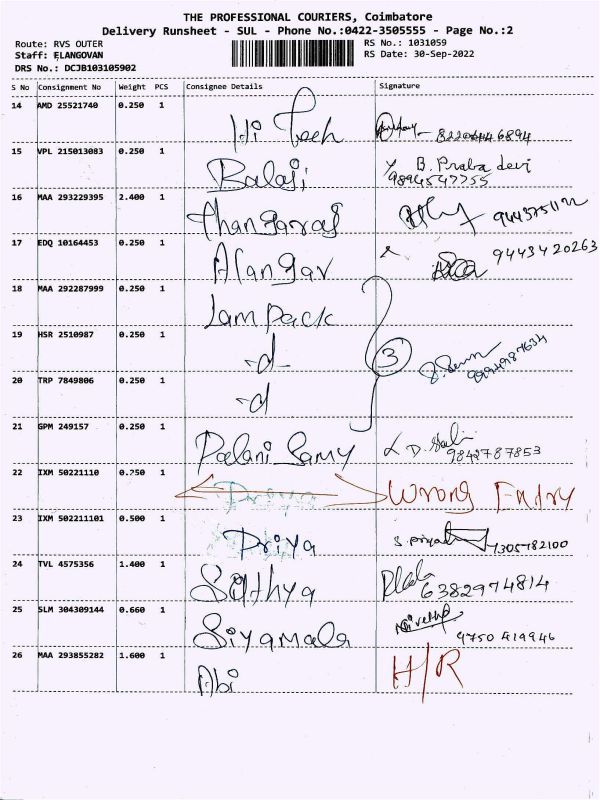 THE PROFESSIONAL COURIERS, Coimbatore
Delivery Runsheet - SUL - Phone No.:0422-3505555 - Page No.:2
Route: RVS OUTER RS No.: 1031059
Staff: ELANGOVAN RS Date: 30-Sep-2022
DRS No.: DCJB103105902
S No Consignment No Weight PCS Consignee Details Signature
14 AMD 25521740 0.250 1
Hi Tech
15 VPL 215013083 0.250 1 B. Praba devi
Balaji 9894547755
16 MAA 293229395 2.400 1
Thangaraj
17 EDQ 10164453 0.250 1 9443420263
Alangar
18 MAA 292287999 0.250 1
Jam pack
19 HSR 2510987 0.250 1
-d- 3
20 TRP 7849806 0.250 1
-d
21 GPM 249157 0.250 1
Palani Samy 9842787853
22 IXM 50221110 0.750 1
Priya Wrong Entry
23 IXM 502211101 0.500 1
Priya 7305782100
24 TVL 4575356 1.400 1
Sathya 6382974814
25 SLM 304309144 0.660 1
Siyamala 9750419946
26 MAA 293855282 1.600 1 H/R
Abi